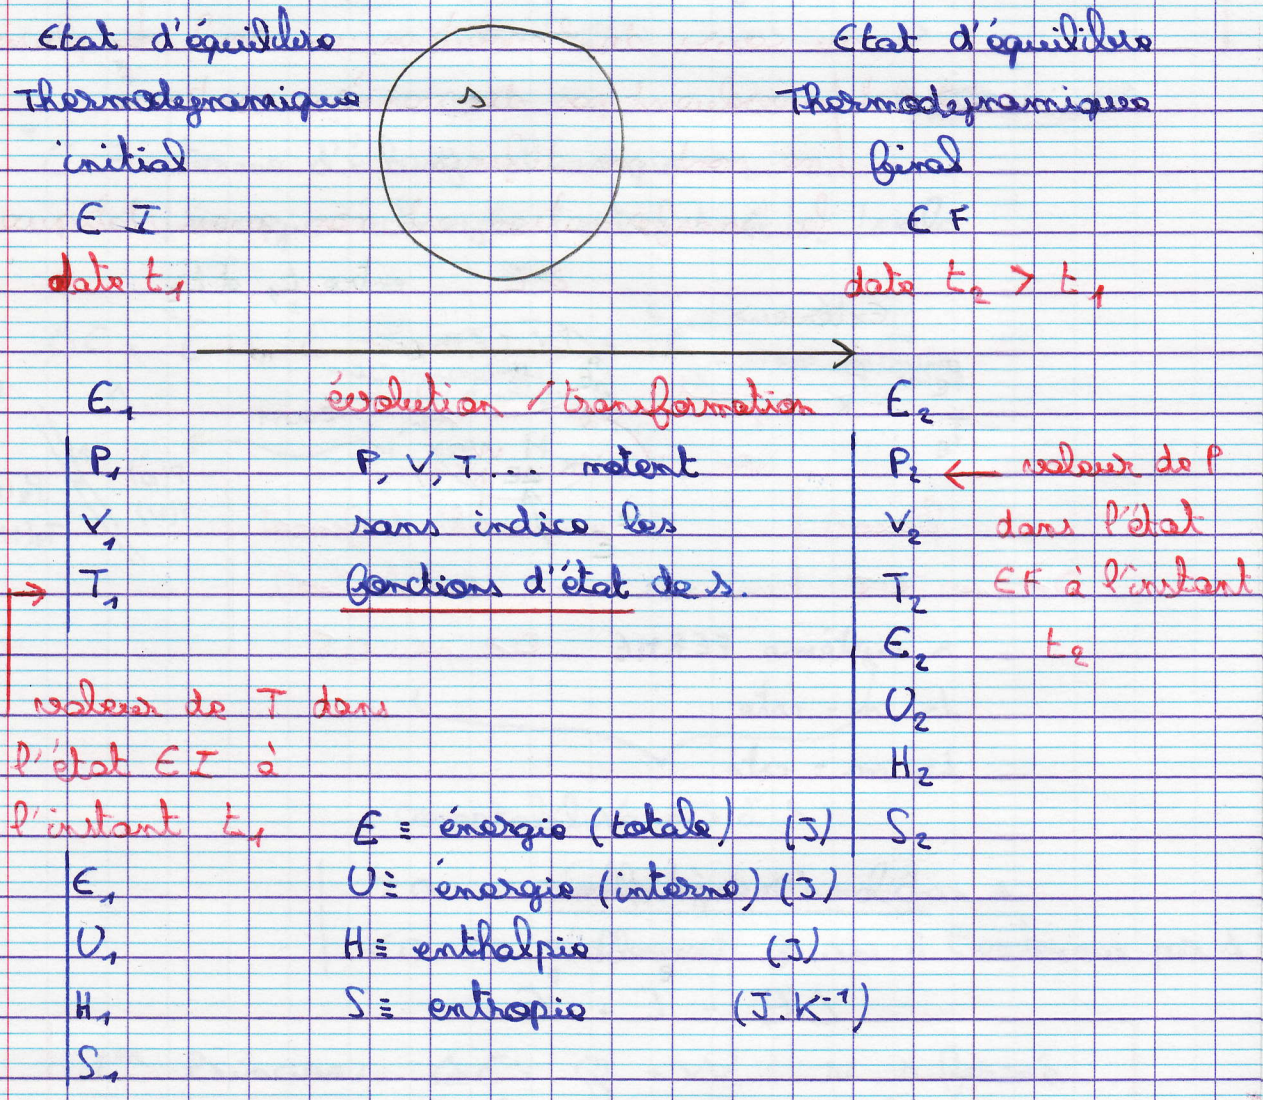 Etat d'équilibre
Thermodynamique
initial
E I
date t₁
s
Etat d'équilibre
Thermodynamique
final
E F
date t₂ > t₁
évolution / transformation
E₁
P₁
V₁
T₁
P, V, T... notent
sans indice les
fonctions d'état de s.
E₂
P₂ ← valeur de P
V₂ dans l'état
T₂ EF à l'instant
E₂ t₂
U₂
H₂
S₂
valeur de T dans
l'état EI à
l'instant t₁
E₁
U₁
H₁
S₁
E ≡ énergie (totale) (J)
U ≡ énergie (interne) (J)
H ≡ enthalpie (J)
S ≡ entropie (J.K⁻¹)